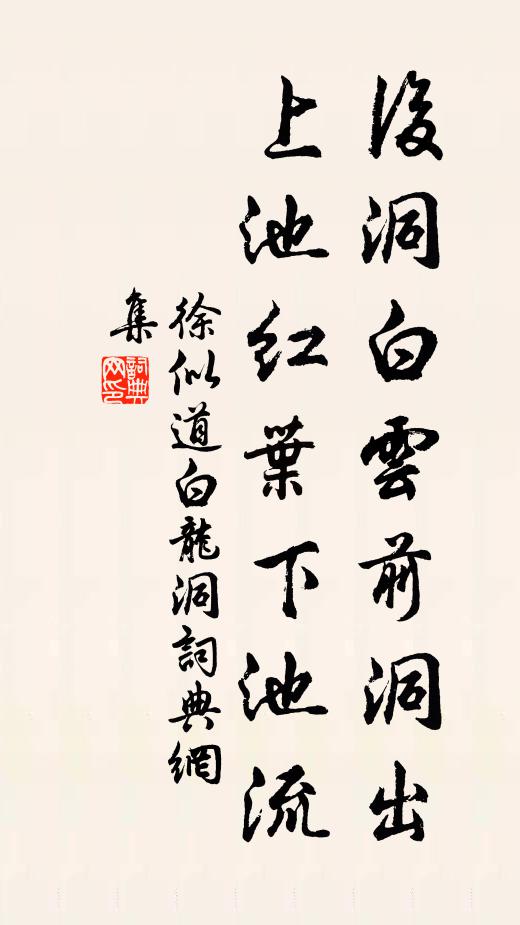 後洞白雲前洞出
上池紅葉下池流
徐似道白龍洞詞典網
集
詞典
网印